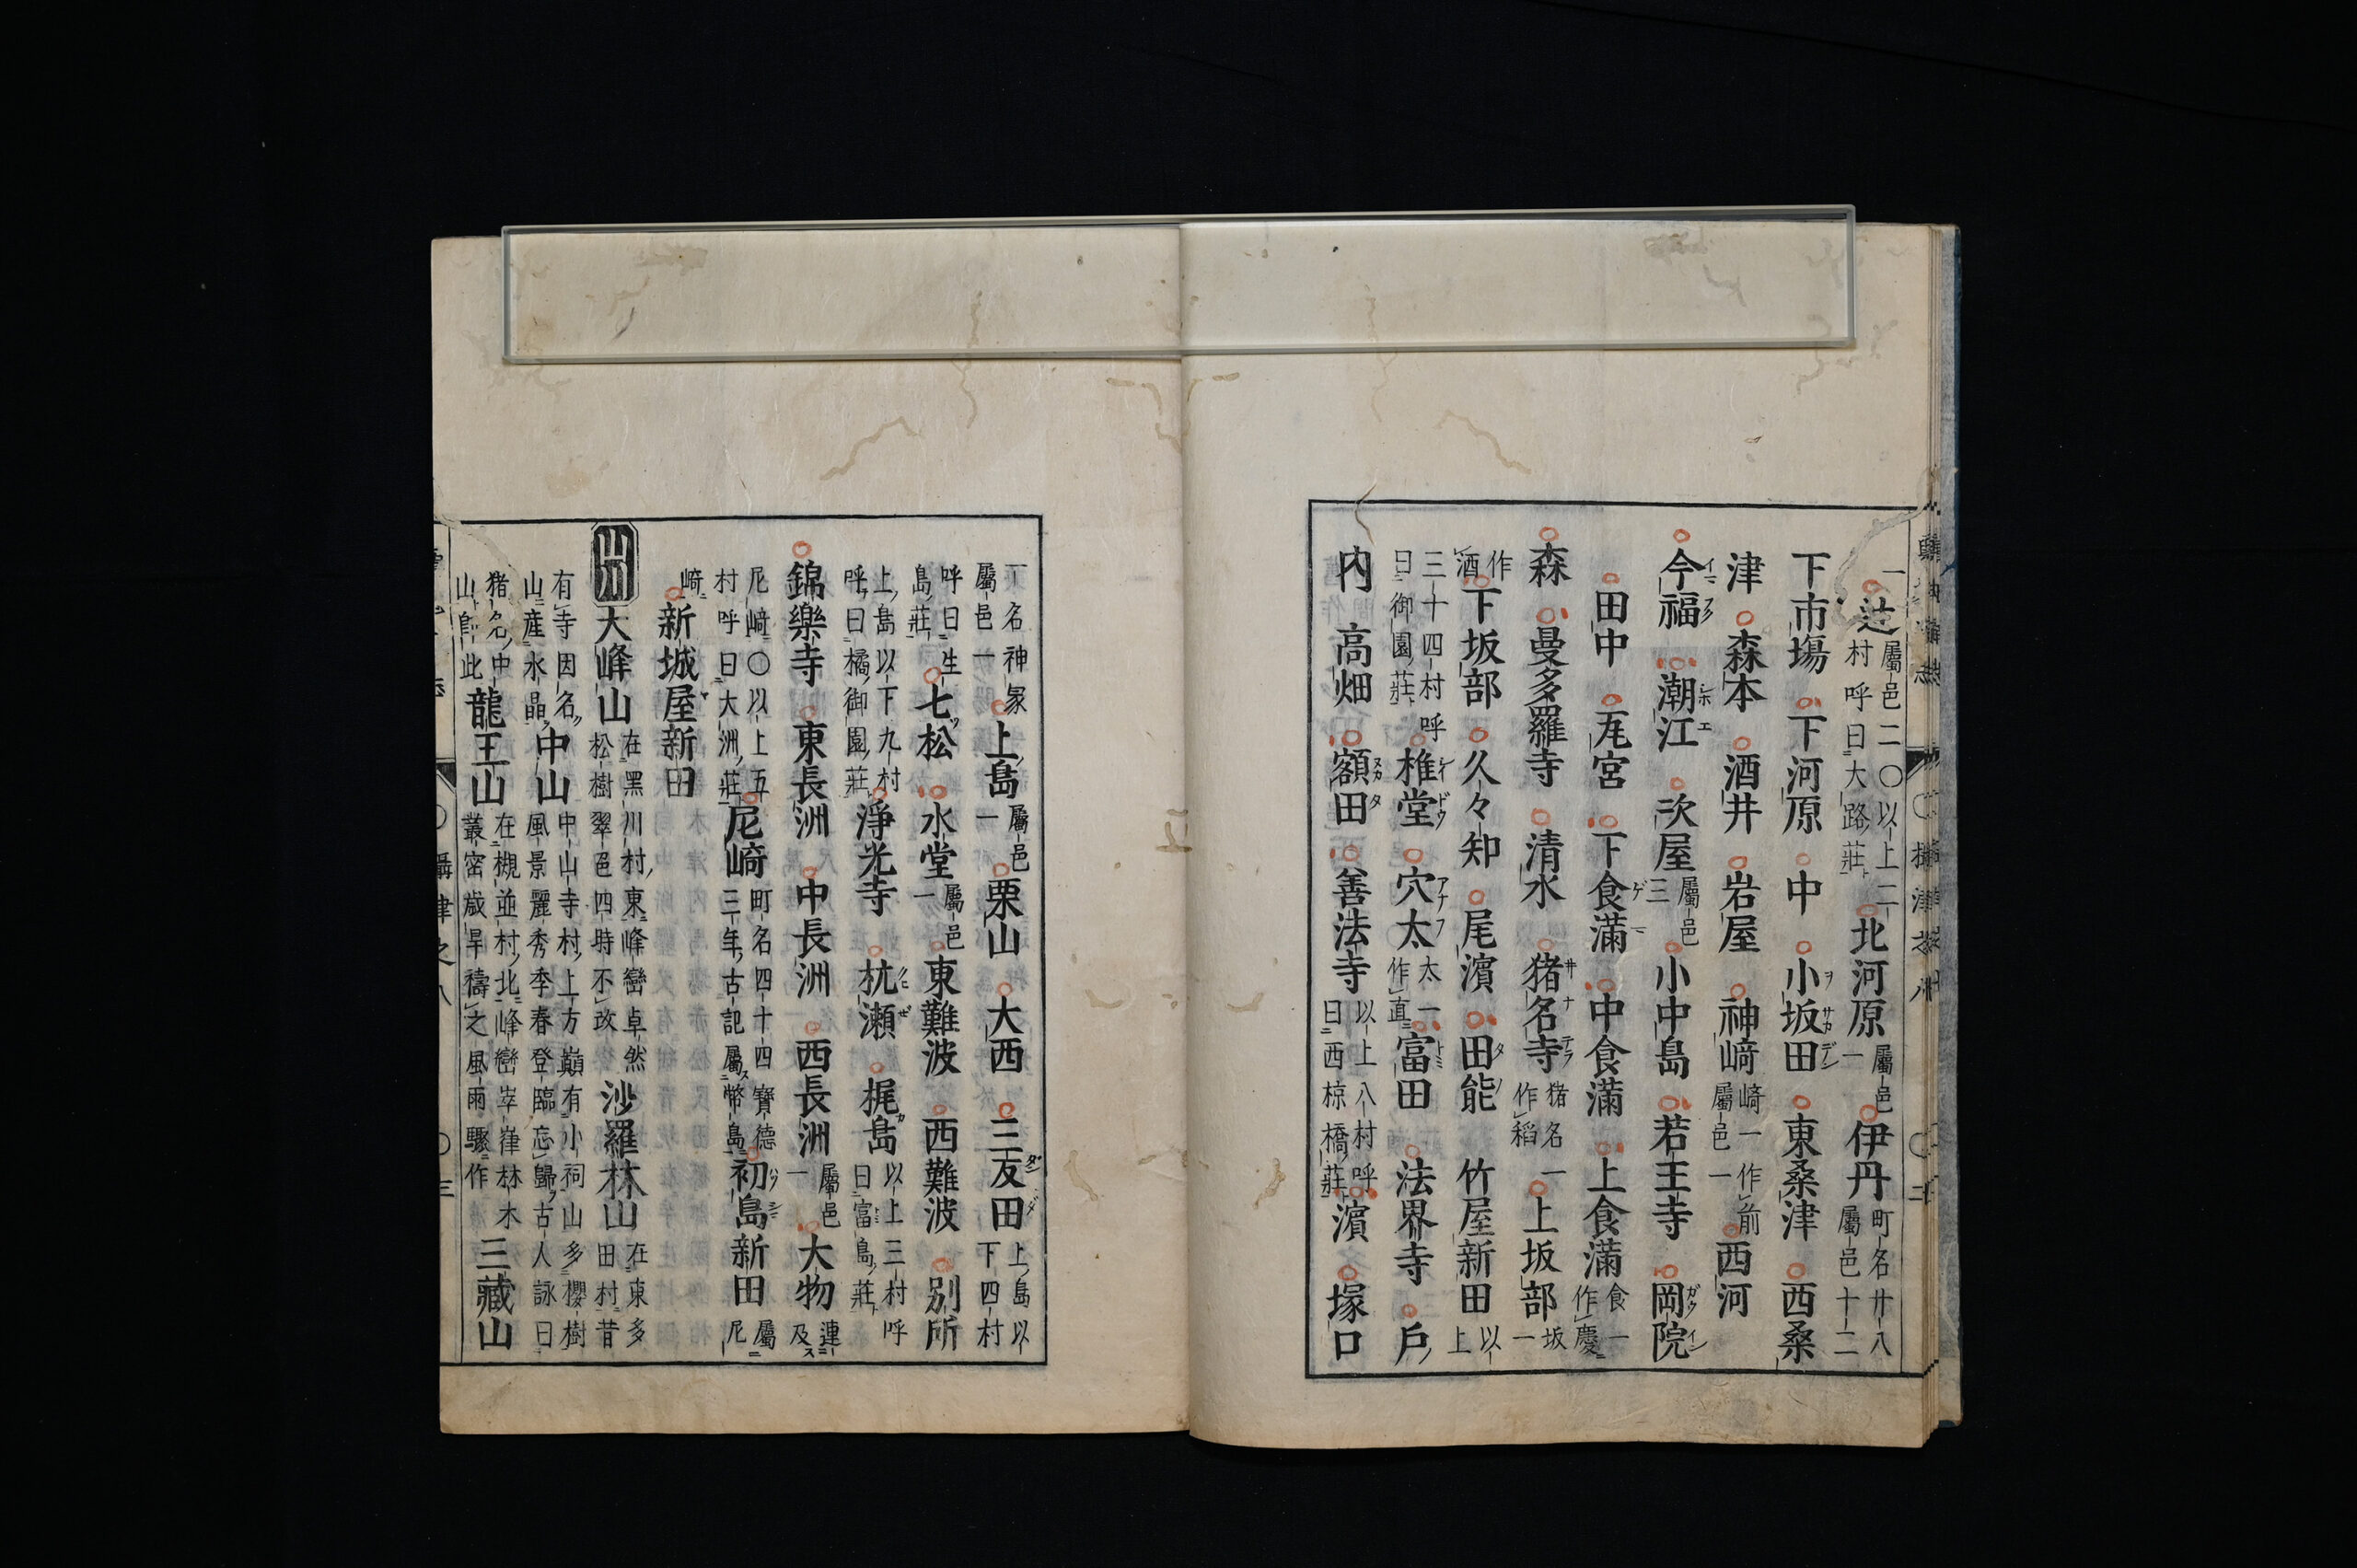 辻屬邑二〇以上二村呼曰大路莊北河原屬邑一伊丹町名廿八屬邑十二
下市場 下河原 中 小坂田 東桑津 西桑
津 森本 酒井 岩屋 神崎崎一作前屬邑一西河
今福 潮江 次屋屬邑三小中島 若王寺 岡院
田中 瓦宮 下食滿 中食滿 上食滿食一作慶
森 曼多羅寺 清水 猪名寺猪名一作稻上坂部坂一
作酒下坂部 久々知 尾濱 田能 竹屋新田以上
三十四村呼曰御園莊椎堂 穴太太一作直富田 法界寺 戶
内 高畑 額田 善法寺以上八村呼曰西椋橋莊濱 塚口
一名神冢屬邑一上島屬邑一栗山 大西 三反田上島以下四村
呼曰生島莊七松 水堂屬邑一東難波 西難波 別所
上島以下九村呼曰橘御園莊淨光寺 杭瀬 梶島以上三村呼曰富島莊
錦樂寺 東長洲 中長洲 西長洲屬邑一大物連及
尼崎〇以上五村呼曰大洲莊尼崎町名四十四寶德三年古記屬幣島初島新田屬尼
崎新城屋新田
山 大峰山在黑川村東峰巒卓然松樹翠邑四時不改沙羅林山在東多田村昔
有寺因名山產水晶中山中山寺村上方巔有小祠山多櫻樹風景麗秀季春登臨忘歸古人詠曰
猪名中山卽此龍王山在槻並村北峰巒崒嵂林木叢密歲旱禱之風雨驟作三藏山